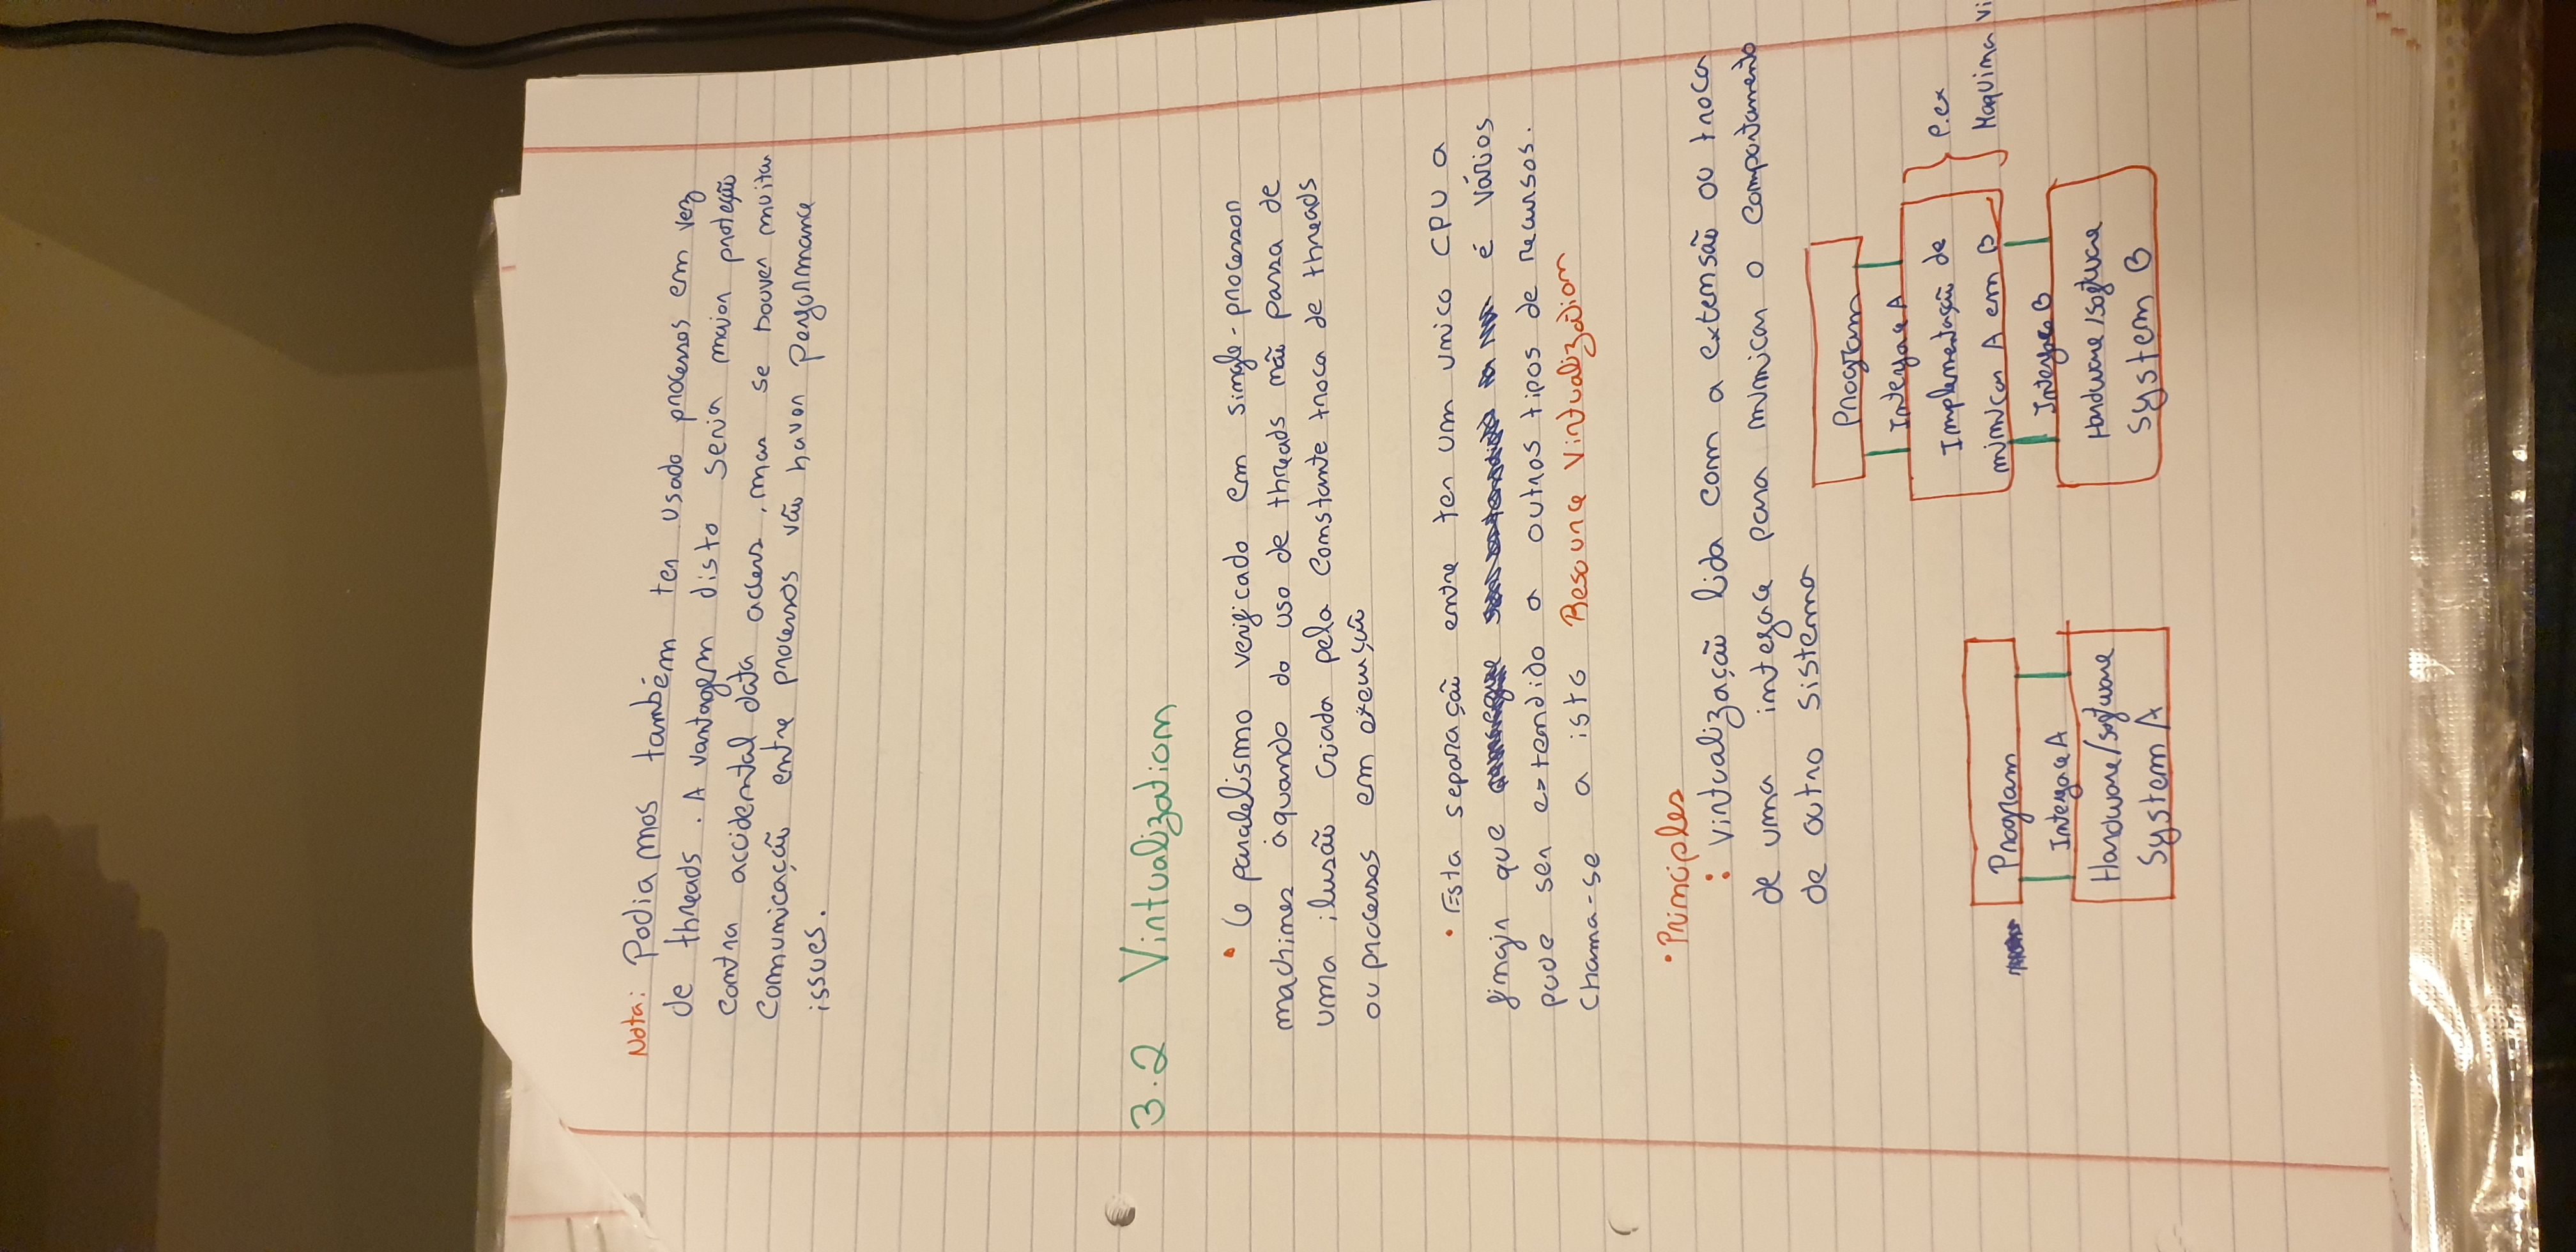 Nota: Podiamos também ter usado processos em vez
de threads. A vantagem disto seria maior proteção
contra accidental data access, mas se houver muita
comunicação entre processos vão haver performance
issues.
3.2 Virtualization
• O paralelismo verificado em single-processor
machines aquando do uso de threads não passa de
uma ilusão criada pela constante troca de threads
ou processos em execução
• Esta separação entre ter um unico CPU a
fingir que é vários
pode ser extendido a outros tipos de recursos.
Chama-se a isto Resource Virtualization
• Principles
: Virtualização lida com a extensão ou troca
de uma inteface para mimicar o comportamento
de outro sistema
Program
Interface A
Implementação de
mimicar A em B
P.ex
Maquina Vi
Interface B
Hardware/software
System B
Program
Interface A
Hardware/software
System A